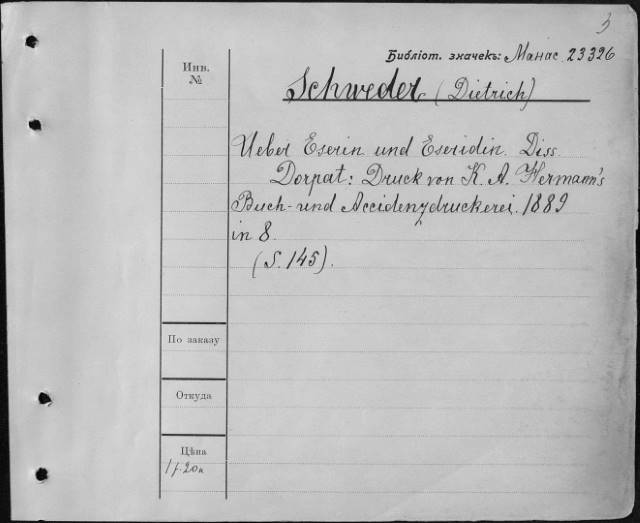 3
Библіот. значекъ: Манас. 23326
Инв.
№
Schweder (Dietrich)
Ueber Eserin und Eseridin. Diss.
Dorpat: Druck von K. A. Hermann's
Buch- und Accidenzdruckerei. 1889
in 8.
(S. 145).
По заказу
Откуда
Цѣна
1 р. 20 к